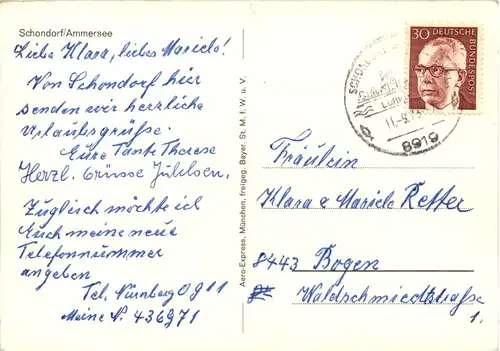 Schondorf/Ammersee
Liebe Klara, liebes Mariele!
Von Schondorf hier
senden wir herzliche
Urlaubsgrüße.
Eure Tante Therese
Herzl. Grüsse
Zuglisch möchte ich
Euch meine neue
Telefonnummer
angeben
Tel. Nürnberg 0911
Meine N. 436971
Aero-Express, München, freigeg. Bayer. St. M. f. W. u. V.
30 DEUTSCHE
BUNDESPOST
8919
Fräulein
Klara u Mariele Retter
8443 Bogen
Waldschmiedtstraße
1.